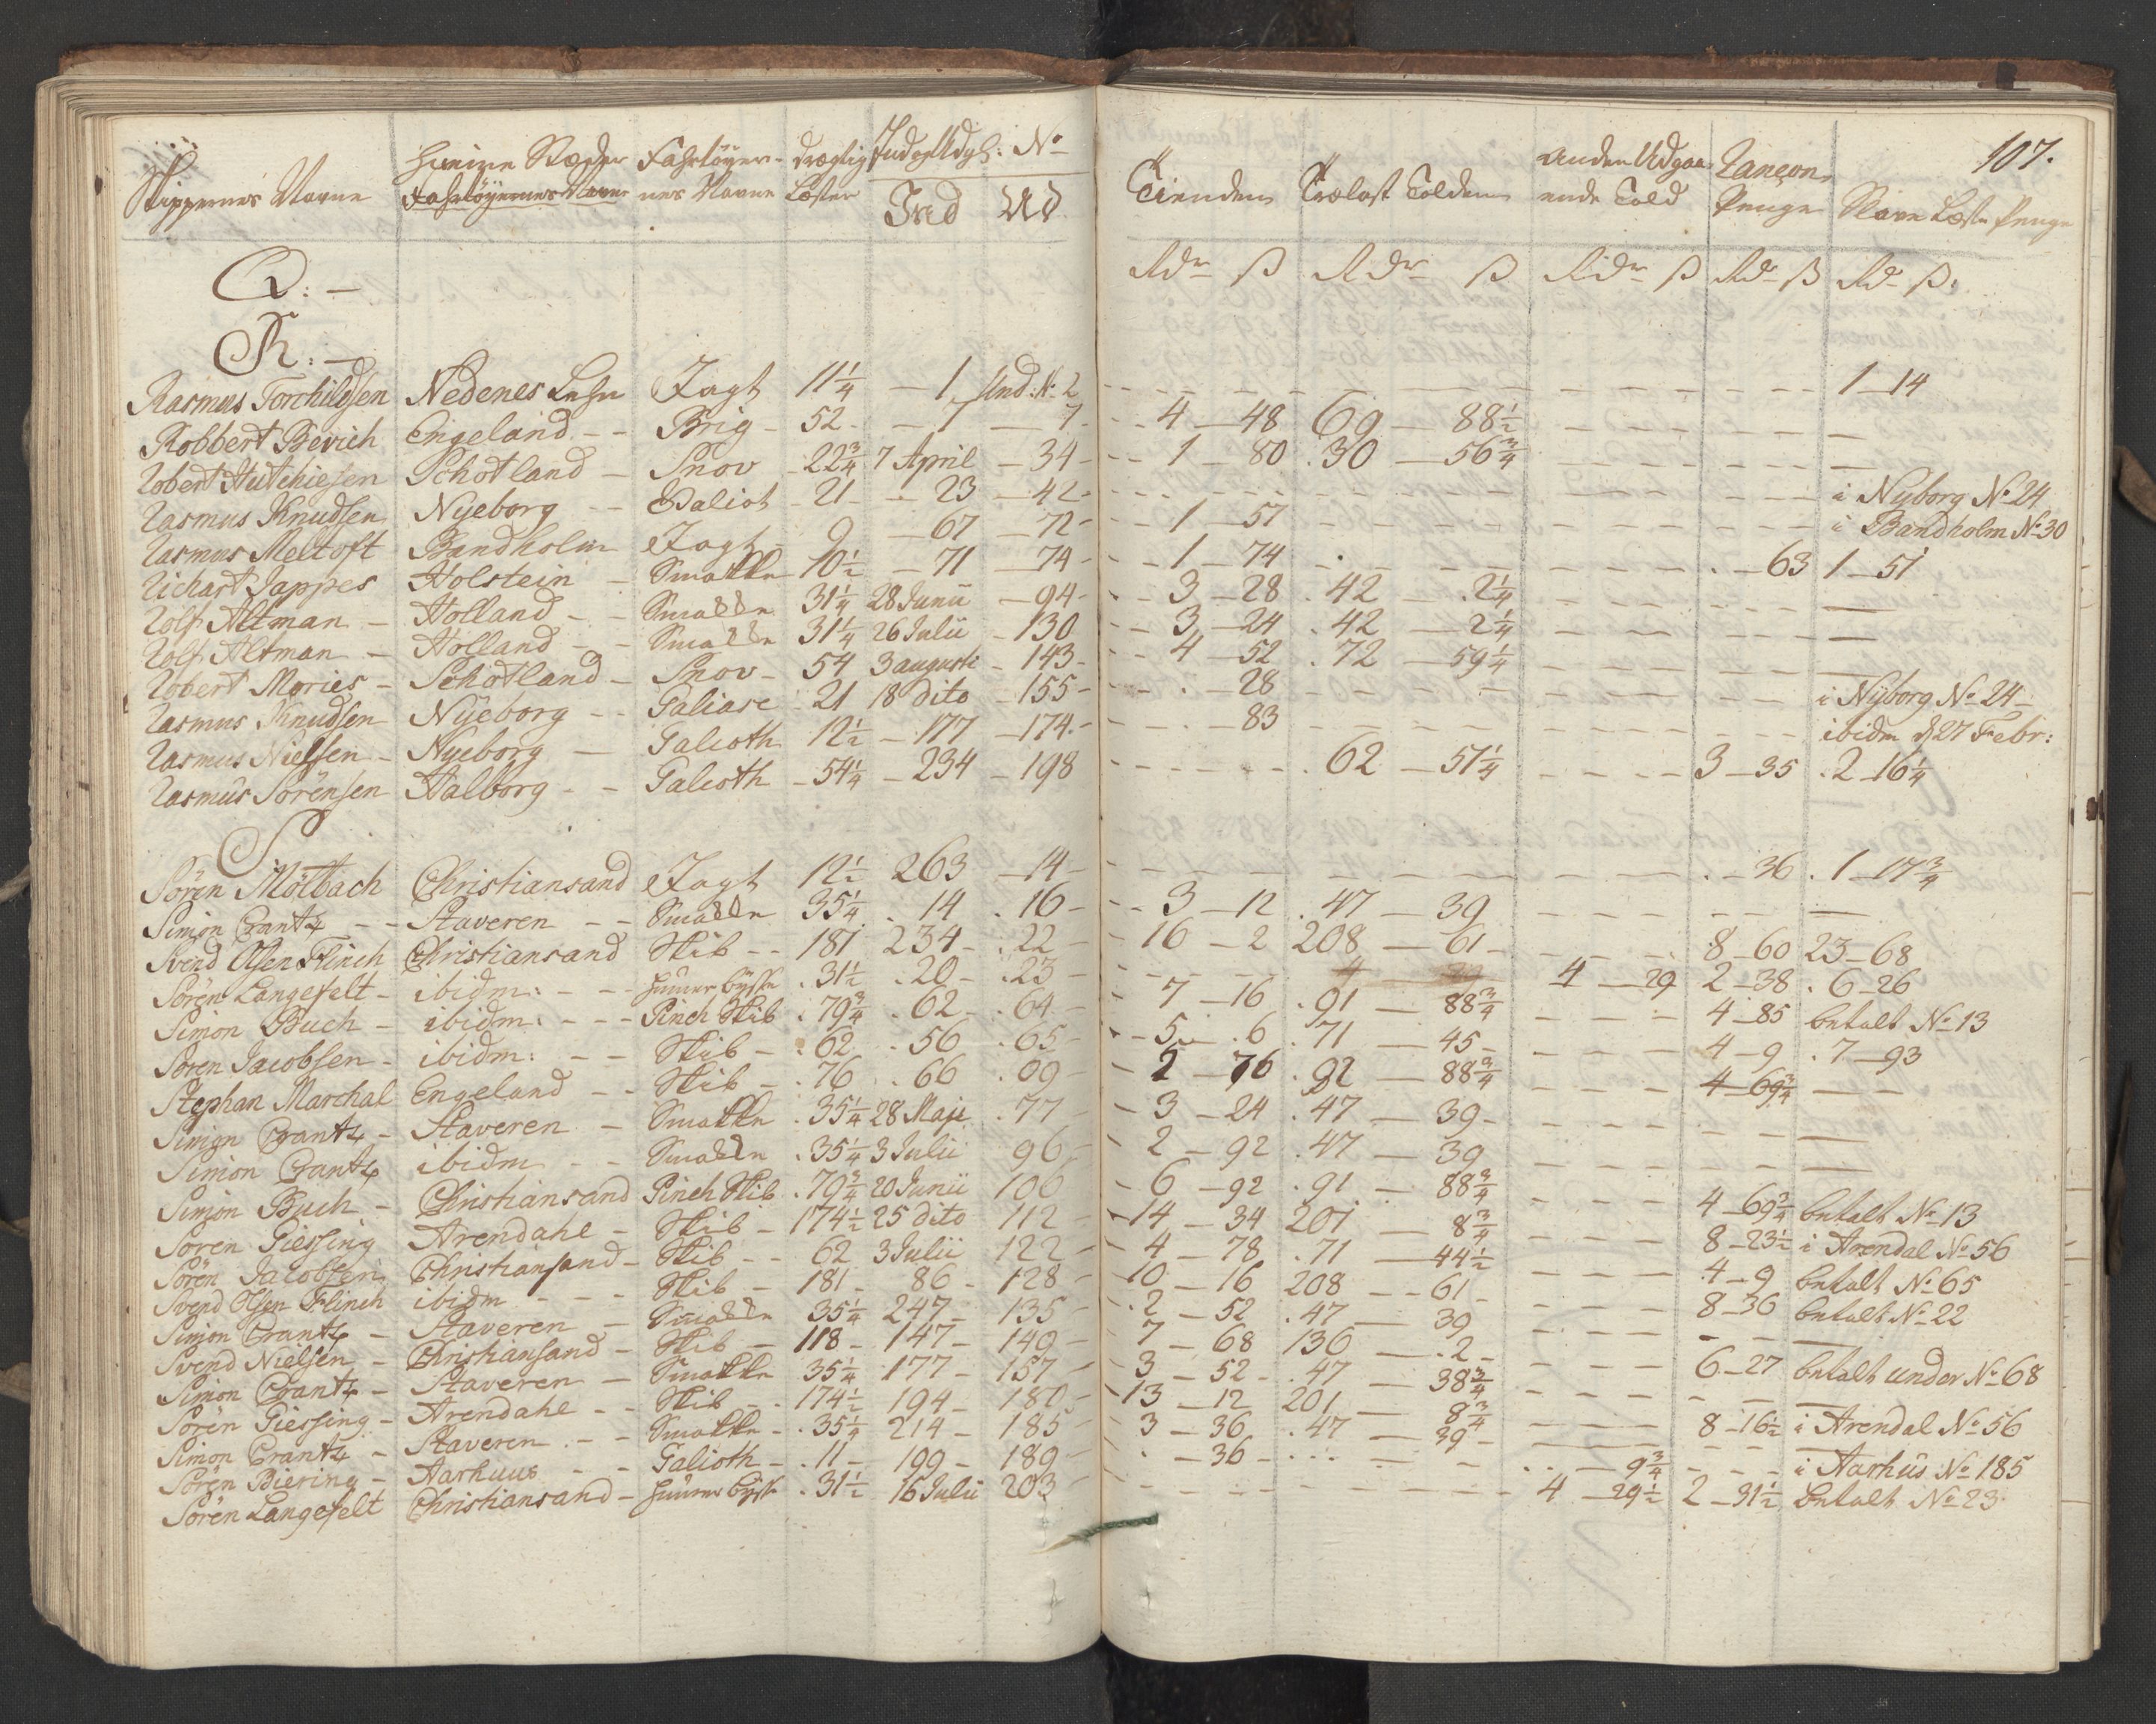 107.
Skippernes Navne Heimen Stæder Fahrtöyernes Navne Fahrtöyernes Navne Drægtig Læster Ind og Udg: No Ind Ud Tienden Trælast Tolden Anden Udgaaende Told Rançon Penge Slave Læste Penge
Rdr ß Rdr ß Rdr ß Rdr ß Rdr ß
Q: —
R: —
Rasmus Torchildsen Nedenes Lehn Jagt 11 1/4 — 1 Und: No 2 1 — 14
Robbert Bevich Engeland Brig 52 — 7 — 7 4 — 48 69 — 88 1/2 —
Robert Hutchiesen Schotland Snov 22 3/4 7 April — 34 1 — 80 30 — 56 3/4 —
Rasmus Knudsen Nyeborg Galiot 21 — 23 — 42 i Nyborg No 24
Rasmus Meltoft Bandholm Jagt 9 — 67 — 72 1 — 57 i Bandholm No 30
Richart Jappes Holstein Smakke 10 1/2 — 71 — 74 1 — 74 — 63 1 — 51
Rolf Altman Holland Smakke 31 1/4 28 Junii — 94 3 — 28 42 — 2 1/4 —
Rolf Altman Holland Smakke 31 1/4 26 Julii — 130 3 — 24 42 — 2 1/4 —
Robert Mories Schotland Snov 54 3 augusti — 143 4 — 52 72 — 59 1/4 —
Rasmus Knudsen Nyeborg Galiase 21 18 dito — 155 — 28 i Nyborg No 24
Rasmus Nielsen Nyeborg Galioth 12 1/2 — 177 — 174 — 83 ibidm d 27 Febr:
Rasmus Sörensen Aalborg Galioth 54 1/4 — 234 — 198 62 — 51 1/4 3 — 35 2 — 16 1/4
S
Sören Mölbach Christiansand Jagt 12 1/2 263 — 14 — 36 1 — 17 3/4
Simon Crantz Staveren Smakke 35 1/4 14 16 3 — 12 47 — 39 —
Svend Olsen Flinch Christiansand Skib 187 234 22 16 — 2 208 — 61 8 — 60 23 — 68
Sören Langefelt ibidm: 31 1/2 20 23 4 — 29 2 — 38 6 — 26
Simon Buch ibidm: Pinch Skib 79 3/4 62 64 7 — 16 91 — 88 3/4 4 — 85 betalt No 13
Sören Jacobsen ibidm: Skib 62 56 65 5 — 6 71 — 45 4 — 9 7 — 93
Stephan Marchal Engeland Skib 76 66 69 2 — 76 92 — 88 3/4 4 — 69 3/4 —
Simon Crantz Staveren Smakke 35 1/4 28 Maji 77 3 — 24 47 — 39 —
Simon Crantz ibidm Smakke 35 1/4 3 Julii 96 2 — 92 47 — 39 —
Simon Buch Christiansand Pinch Skib 79 3/4 20 Junii 106 6 — 92 91 — 88 3/4 4 — 69 3/4 betalt No 13
Sören Giessing Arendahl Skib 174 1/2 25 dito 112 14 — 34 201 8 3/4 8 — 23 1/2 i Arendal No 56
Sören Jacobsen Christiansand Skib 62 3 Julii 122 4 — 78 71 — 44 1/2 4 — 9 betalt No 65
Svend Olsen Flinch ibidm Skib 181 86 128 10 — 16 208 — 61 8 — 36 betalt No 22
Simon Crantz Staveren Smakke 35 1/4 247 135 2 — 52 47 — 39 —
Svend Nielsen Christiansand Skib 118 147 149 7 — 68 136 — 2 6 — 27 betalt under No 68
Simon Crantz Staveren Smakke 35 1/4 177 157 3 — 52 47 — 38 3/4 —
Sören Giessing Arendahl Skib 174 1/2 194 180 13 — 12 201 — 8 3/4 8 — 16 1/2 i Arendal No 56
Simon Crantz Staveren Smakke 35 1/4 214 185 3 — 36 47 — 39 —
Sören Biering Aarhuus Galioth 11 199 189 — 36 — 9 3/4 i Aarhus No 185
Sören Langefelt Christiansand 31 1/2 16 Julii 203 4 — 29 1/2 2 — 31 1/2 betalt No 23